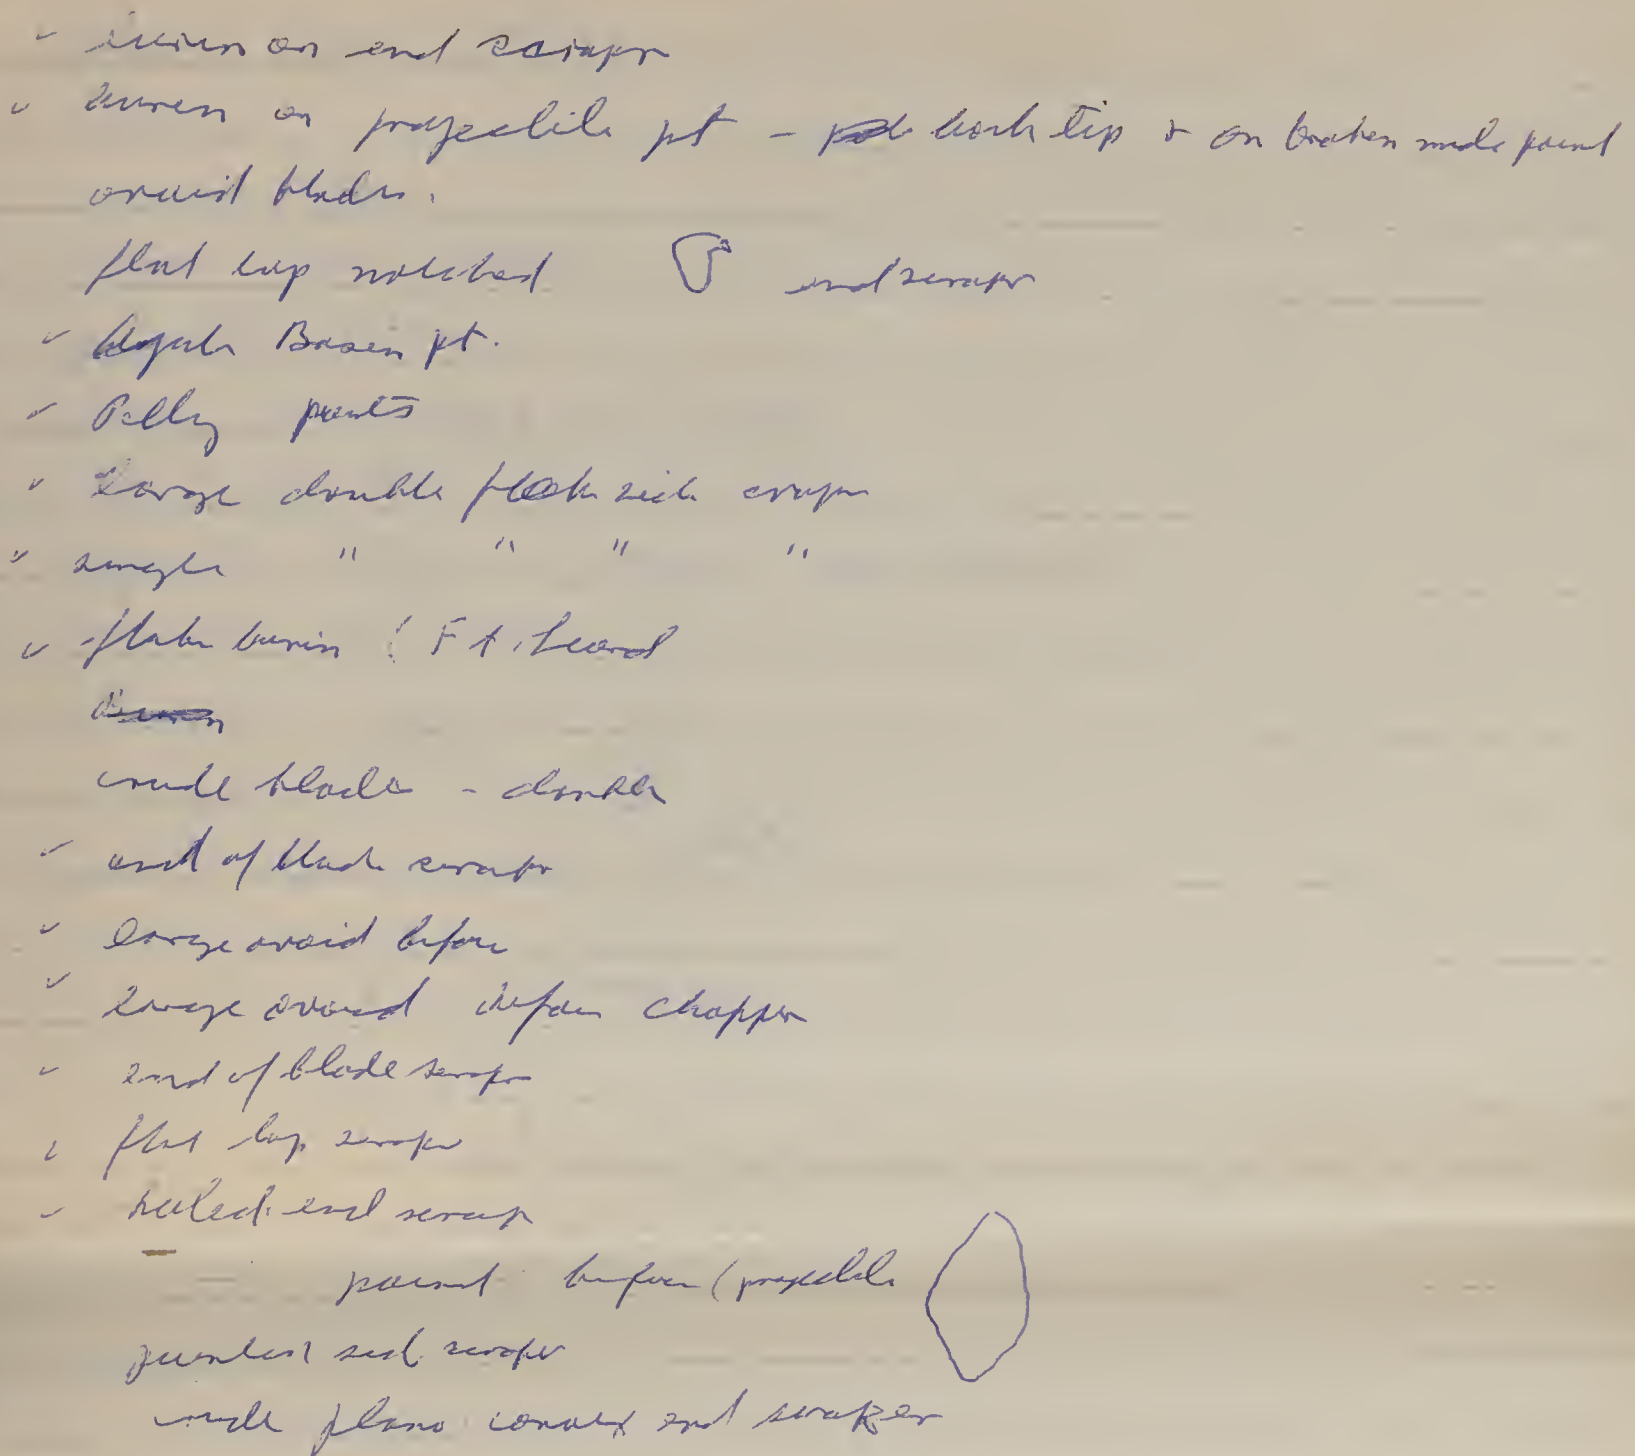 ✓ burin on end scraper
✓ burin on projectile pt - both tip & on broken mid point
ovoid blades.
flat top notched end scraper
✓ Agate Basin pt.
✓ Pelly points
✓ Large double flake side scraper
✓ single " " " "
✓ flake burin ( Ft. Liard
crude blade - double
✓ end of blade scraper
✓ large ovoid biface
✓ large ovoid biface chopper
✓ end of blade scraper
✓ flat top scraper
✓ end scraper
point biface (projectile
side scraper
crude plano convex end scraper